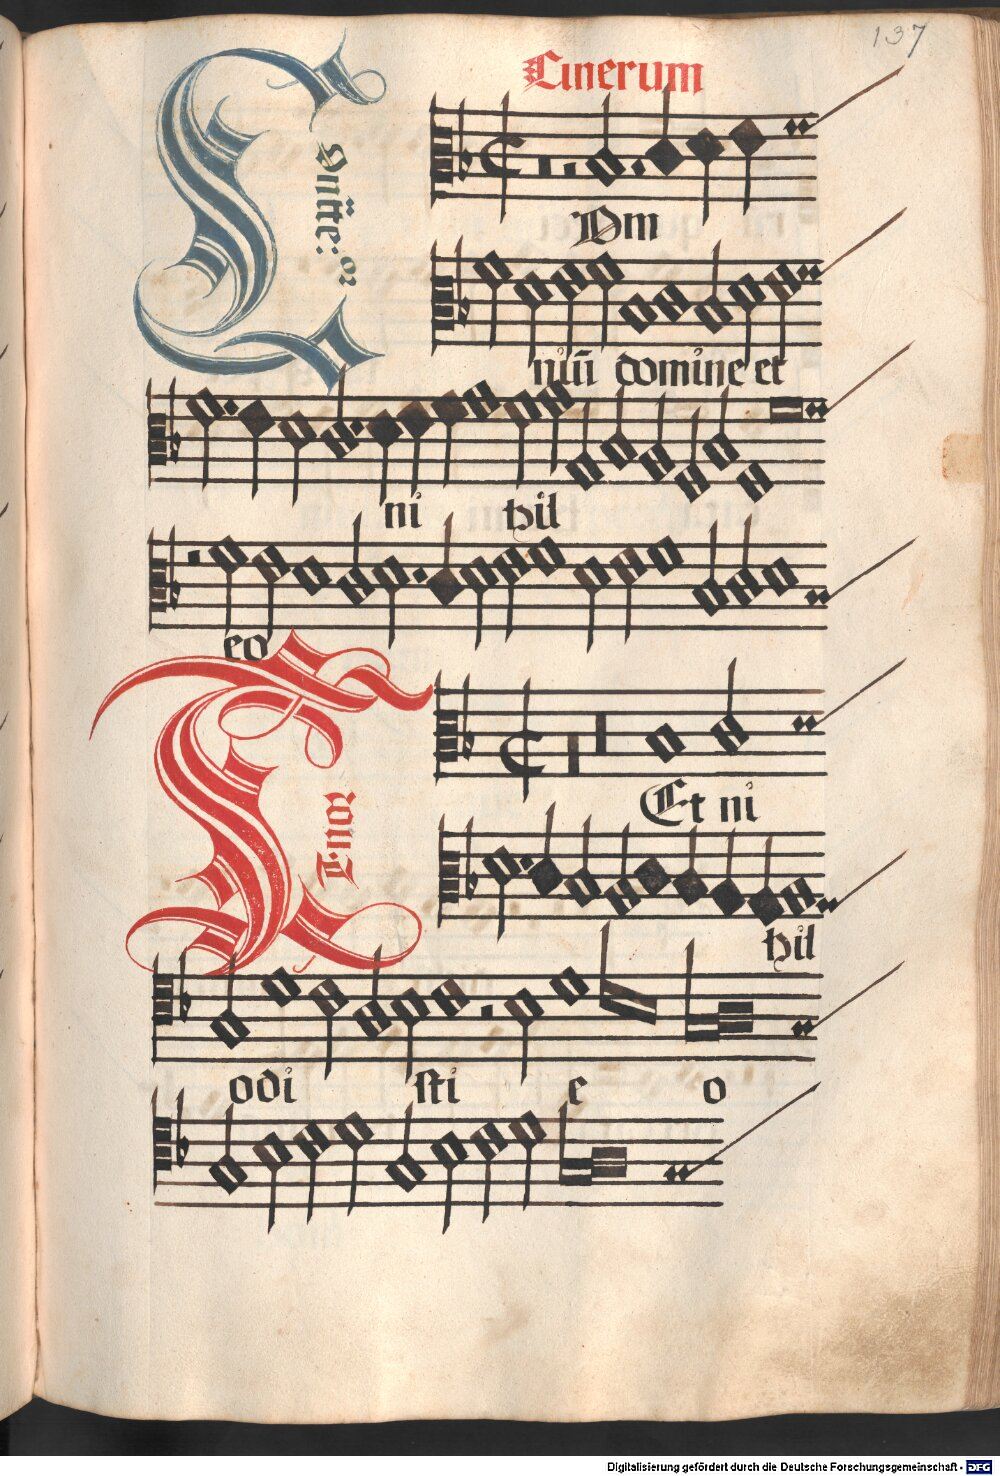 137
Cinerum
Om
niū domine et
ni hil
eo
Tenor
Et ni
hil
odi sti e o
Digitalisierung gefördert durch die Deutsche Forschungsgemeinschaft - DFG